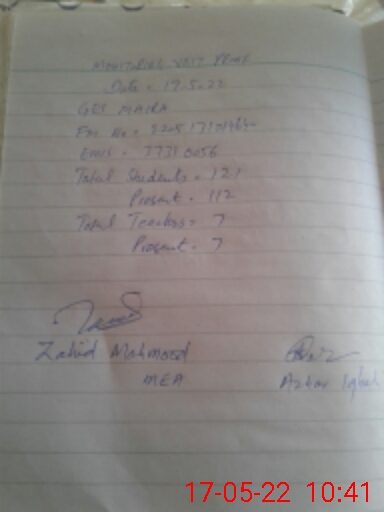 MONITORING VISIT PROOF
Date: 17-5-22
GPS MAIRA
Emis - 37310056
Total Students = 121
Present - 112
Total Teachers = 7
Present - 7
Zahid Mahmood
MEA
Azhar Iqbal
17-05-22 10:41